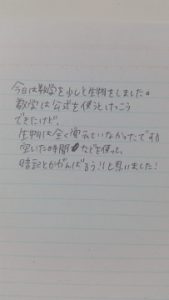 今日は数学を少しと生物をしました。
数学は公式を使うとけっこう
できたけど、
生物は全く覚えていなかったです!!
空いた時間などを使って、
暗記とかがんばろう!と思いました!